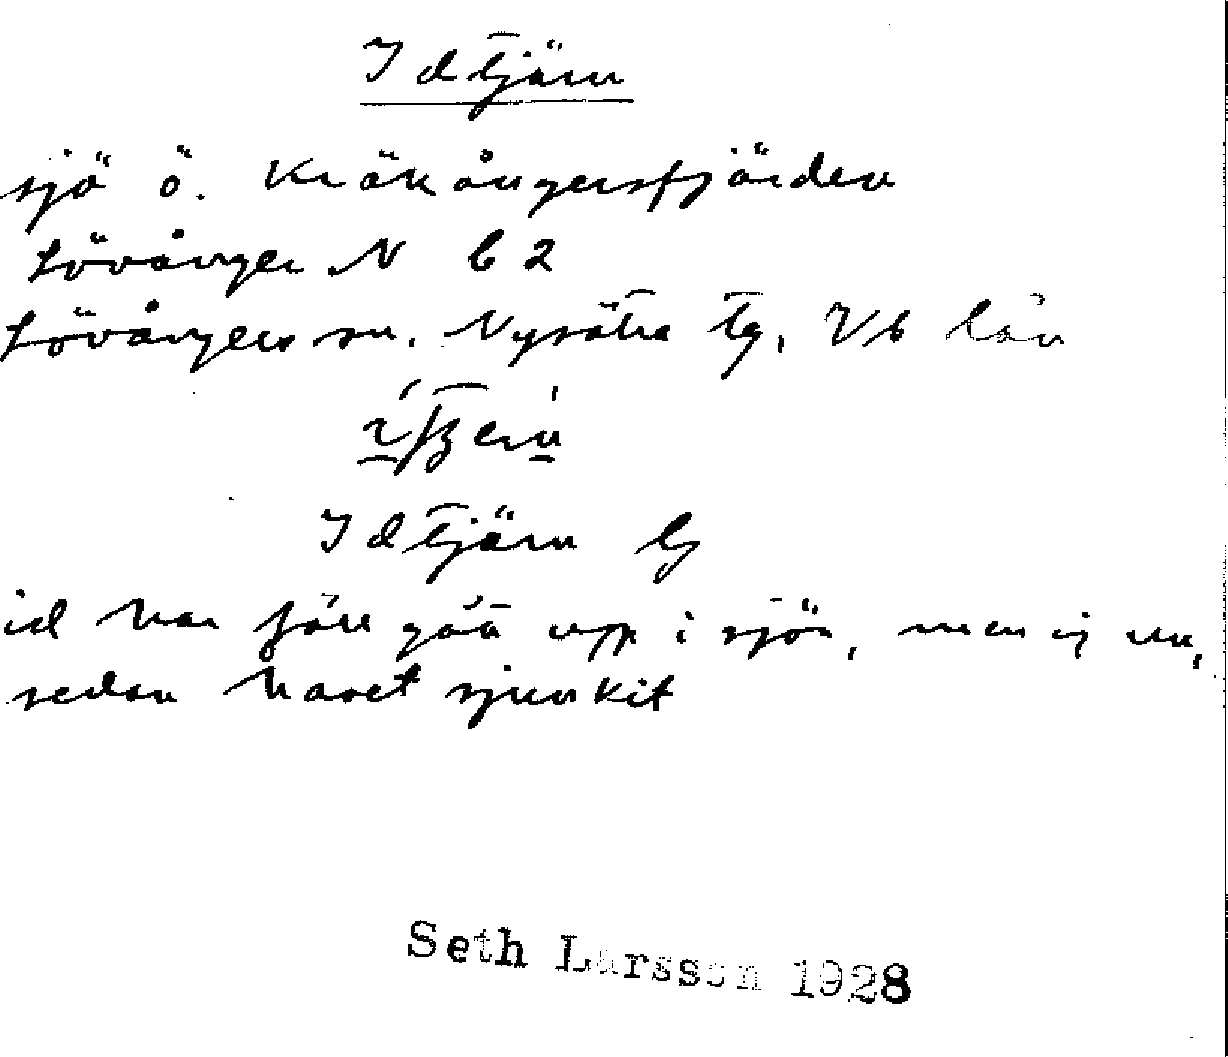 Idtjärn
sjö ö. Kräkångersfjärden
Lövånger N b 2
Lövångers sn. Nysätra tg. Vb län
Idtjärn
id har förr gått upp i sjön, men ej nu,
sedan havet sjunkit
Seth Larsson 1928